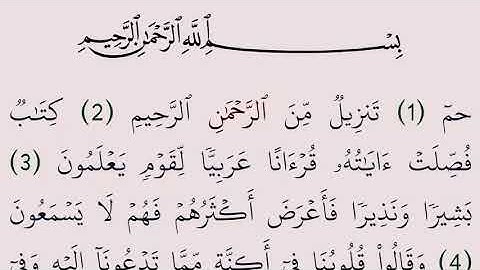 بِسْمِ ٱللَّهِ ٱلرَّحْمَٰنِ ٱلرَّحِيمِ
حمٓ (1) تَنزِيلٌ مِّنَ ٱلرَّحْمَٰنِ ٱلرَّحِيمِ (2) كِتَٰبٌ
فُصِّلَتْ ءَايَٰتُهُۥ قُرْءَانًا عَرَبِيًّا لِّقَوْمٍ يَعْلَمُونَ (3)
بَشِيرًا وَنَذِيرًا فَأَعْرَضَ أَكْثَرُهُمْ فَهُمْ لَا يَسْمَعُونَ
(4) وَقَالُوا۟ قُلُوبُنَا فِىٓ أَكِنَّةٍ مِّمَّا تَدْعُونَآ إِلَيْهِ وَفِىٓ